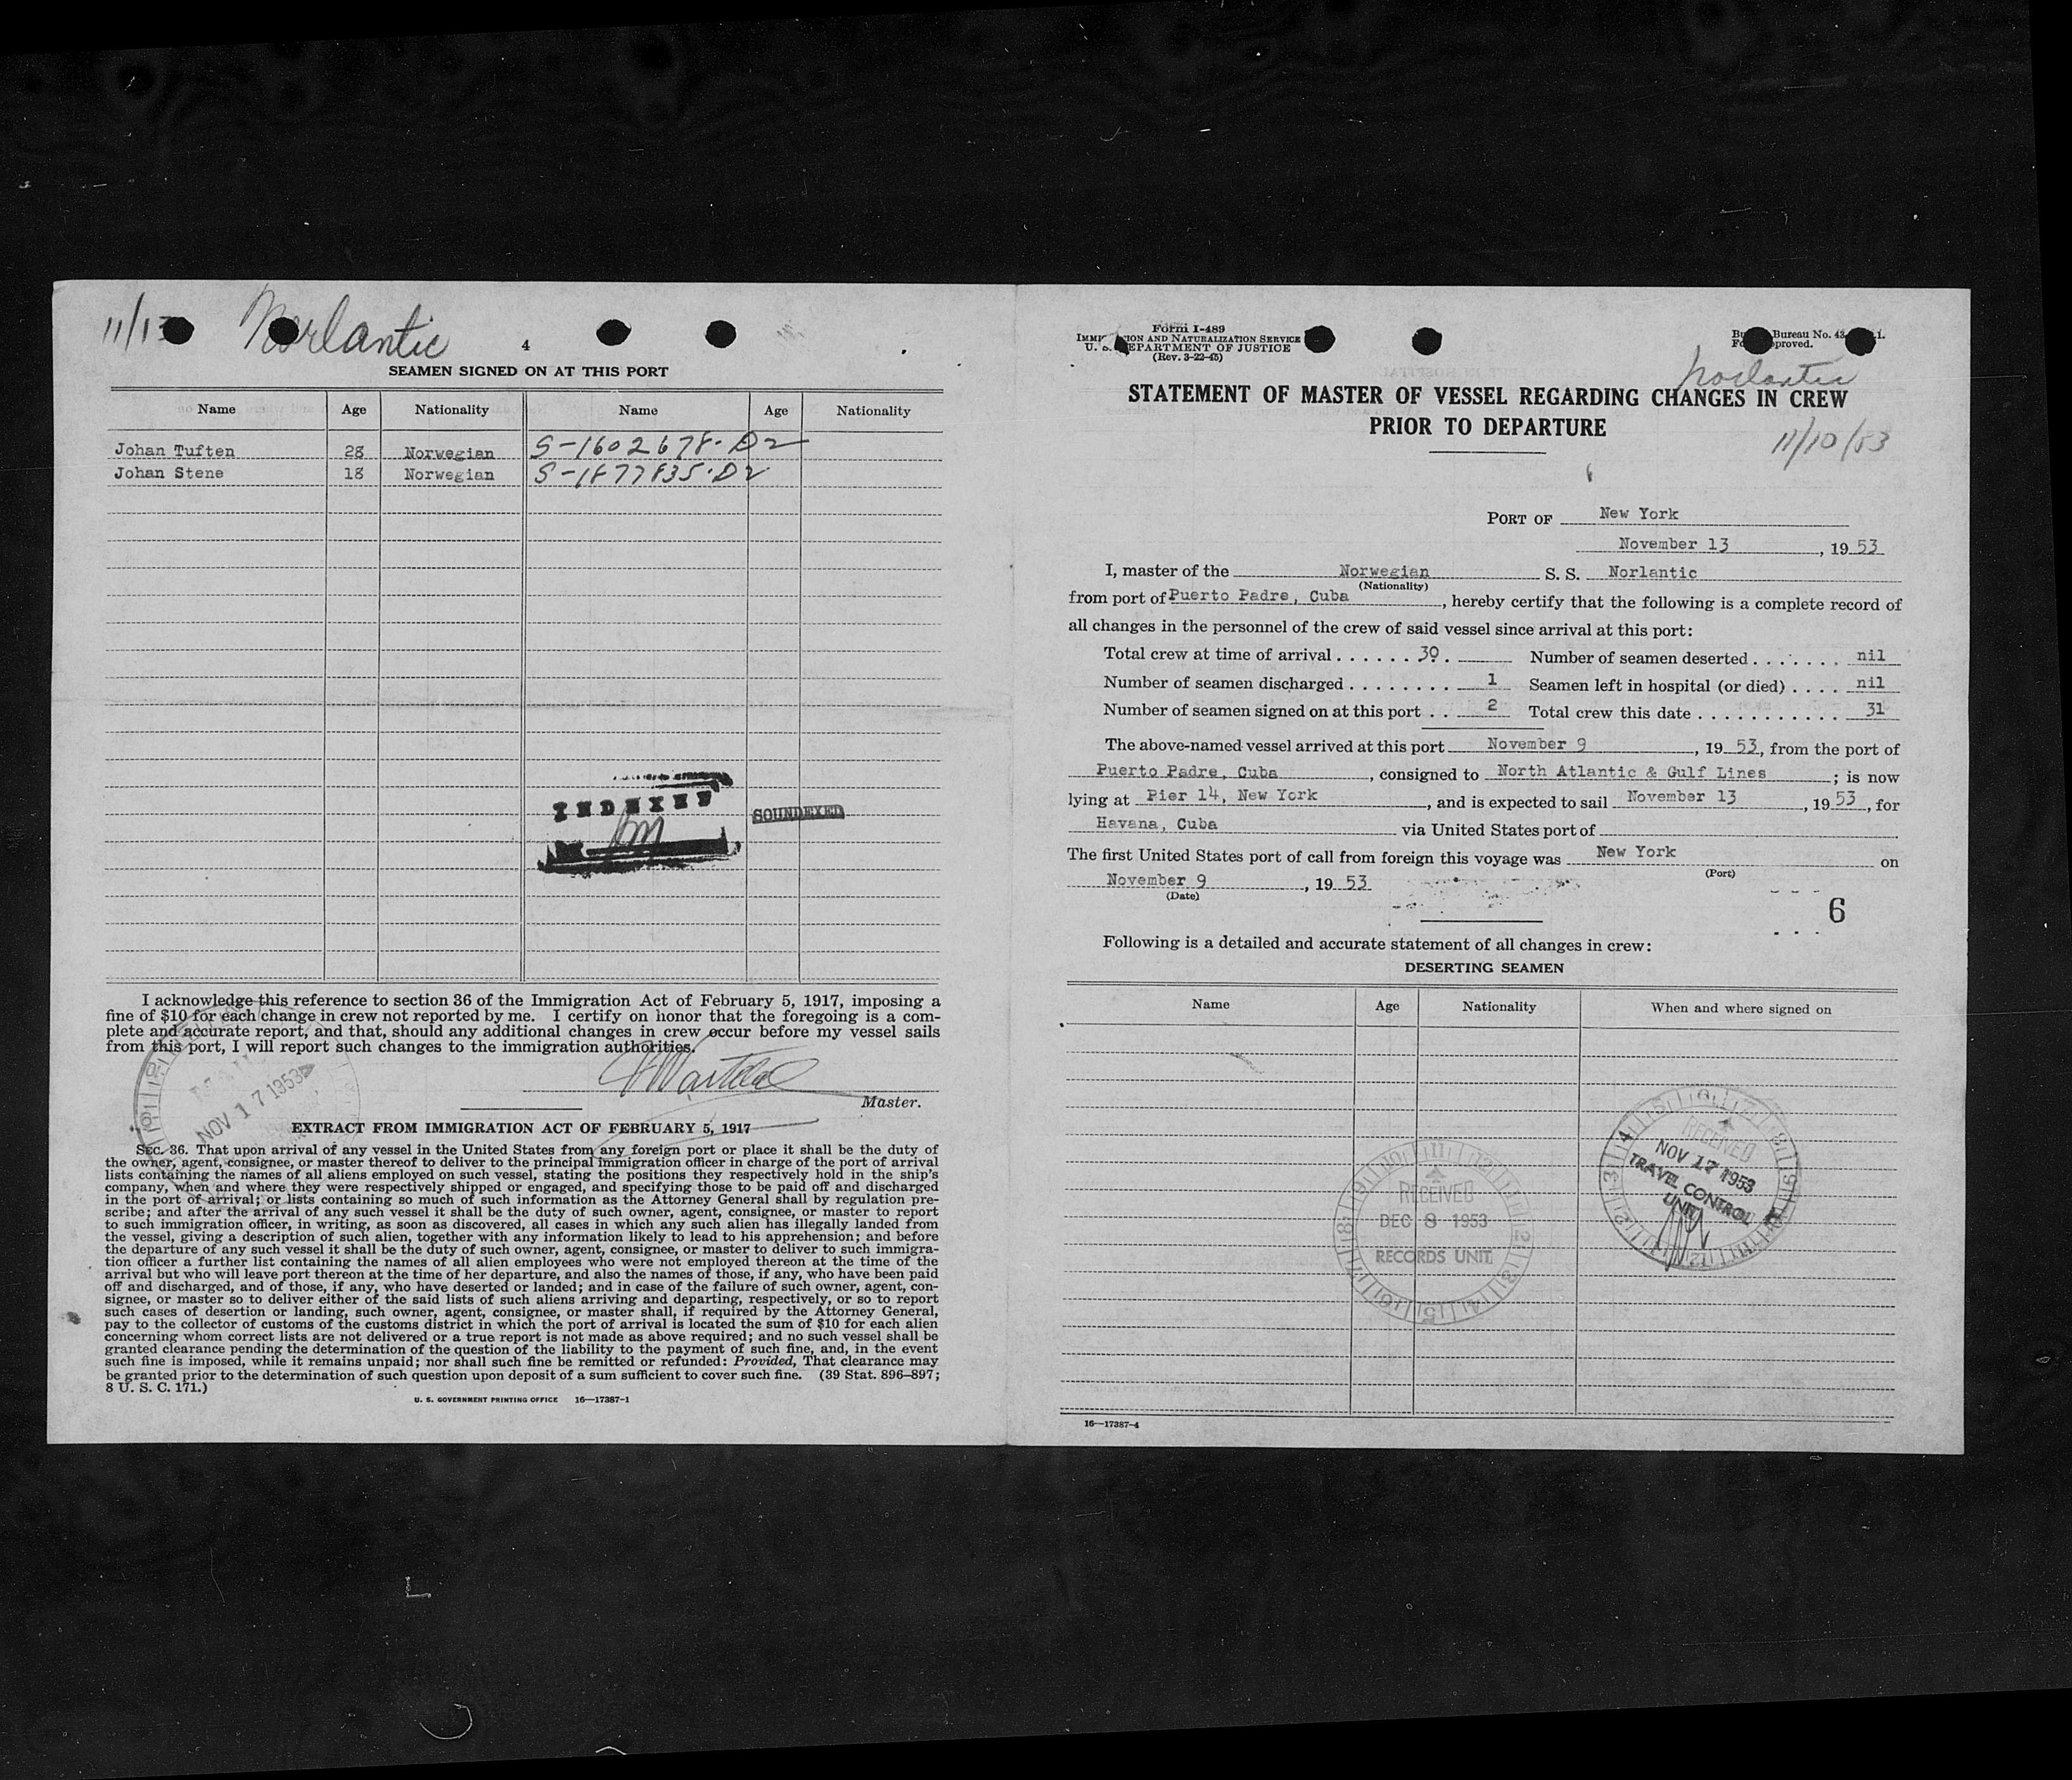 11/13 Norlantic
4
SEAMEN SIGNED ON AT THIS PORT
Name Age Nationality Name Age Nationality
Johan Tuften 28 Norwegian S-1602678-D2
Johan Stene 18 Norwegian S-1877835-D2
INDEXED
SOUNDEXED
I acknowledge this reference to section 36 of the Immigration Act of February 5, 1917, imposing a
fine of $10 for each change in crew not reported by me. I certify on honor that the foregoing is a com-
plete and accurate report, and that, should any additional changes in crew occur before my vessel sails
from this port, I will report such changes to the immigration authorities.
Master.
NOV 17 1953
EXTRACT FROM IMMIGRATION ACT OF FEBRUARY 5, 1917
SEC. 36. That upon arrival of any vessel in the United States from any foreign port or place it shall be the duty of
the owner, agent, consignee, or master thereof to deliver to the principal immigration officer in charge of the port of arrival
lists containing the names of all aliens employed on such vessel, stating the positions they respectively hold in the ship's
company, when and where they were respectively shipped or engaged, and specifying those to be paid off and discharged
in the port of arrival; or lists containing so much of such information as the Attorney General shall by regulation pre-
scribe; and after the arrival of any such vessel it shall be the duty of such owner, agent, consignee, or master to report
to such immigration officer, in writing, as soon as discovered, all cases in which any such alien has illegally landed from
the vessel, giving a description of such alien, together with any information likely to lead to his apprehension; and before
the departure of any such vessel it shall be the duty of such owner, agent, consignee, or master to deliver to such immigra-
tion officer a further list containing the names of all alien employees who were not employed thereon at the time of the
arrival but who will leave port thereon at the time of her departure, and also the names of those, if any, who have been paid
off and discharged, and of those, if any, who have deserted or landed; and in case of the failure of such owner, agent, con-
signee, or master so to deliver either of the said lists of such aliens arriving and departing, respectively, or so to report
such cases of desertion or landing, such owner, agent, consignee, or master shall, if required by the Attorney General,
pay to the collector of customs of the customs district in which the port of arrival is located the sum of $10 for each alien
concerning whom correct lists are not delivered or a true report is not made as above required; and no such vessel shall be
granted clearance pending the determination of the question of the liability to the payment of such fine, and, in the event
such fine is imposed, while it remains unpaid; nor shall such fine be remitted or refunded: Provided, That clearance may
be granted prior to the determination of such question upon deposit of a sum sufficient to cover such fine. (39 Stat. 896–897;
8 U. S. C. 171.)
U. S. GOVERNMENT PRINTING OFFICE 16—17387-1
Form I-489
IMMIGRATION AND NATURALIZATION SERVICE
U. S. DEPARTMENT OF JUSTICE
(Rev. 3-22-45)
Bureau No. 43
Approved.
Norlantic
STATEMENT OF MASTER OF VESSEL REGARDING CHANGES IN CREW
PRIOR TO DEPARTURE
11/10/53
PORT OF New York
November 13, 1953
I, master of the Norwegian S. S. Norlantic
(Nationality)
from port of Puerto Padre, Cuba, hereby certify that the following is a complete record of
all changes in the personnel of the crew of said vessel since arrival at this port:
Total crew at time of arrival . . . . . . 30. Number of seamen deserted . . . . . . . nil
Number of seamen discharged . . . . . . . . 1 Seamen left in hospital (or died) . . . . nil
Number of seamen signed on at this port . . 2 Total crew this date . . . . . . . . . . . 31
The above-named vessel arrived at this port November 9, 1953, from the port of
Puerto Padre, Cuba, consigned to North Atlantic & Gulf Lines; is now
lying at Pier 14, New York, and is expected to sail November 13, 1953, for
Havana, Cuba via United States port of
The first United States port of call from foreign this voyage was New York on
(Port)
November 9, 1953
(Date)
6
Following is a detailed and accurate statement of all changes in crew:
DESERTING SEAMEN
Name Age Nationality When and where signed on
RECEIVED
NOV 17 1953
TRAVEL CONTROL
UNIT
RECEIVED
DEC 8 1953
RECORDS UNIT
16—17387-4